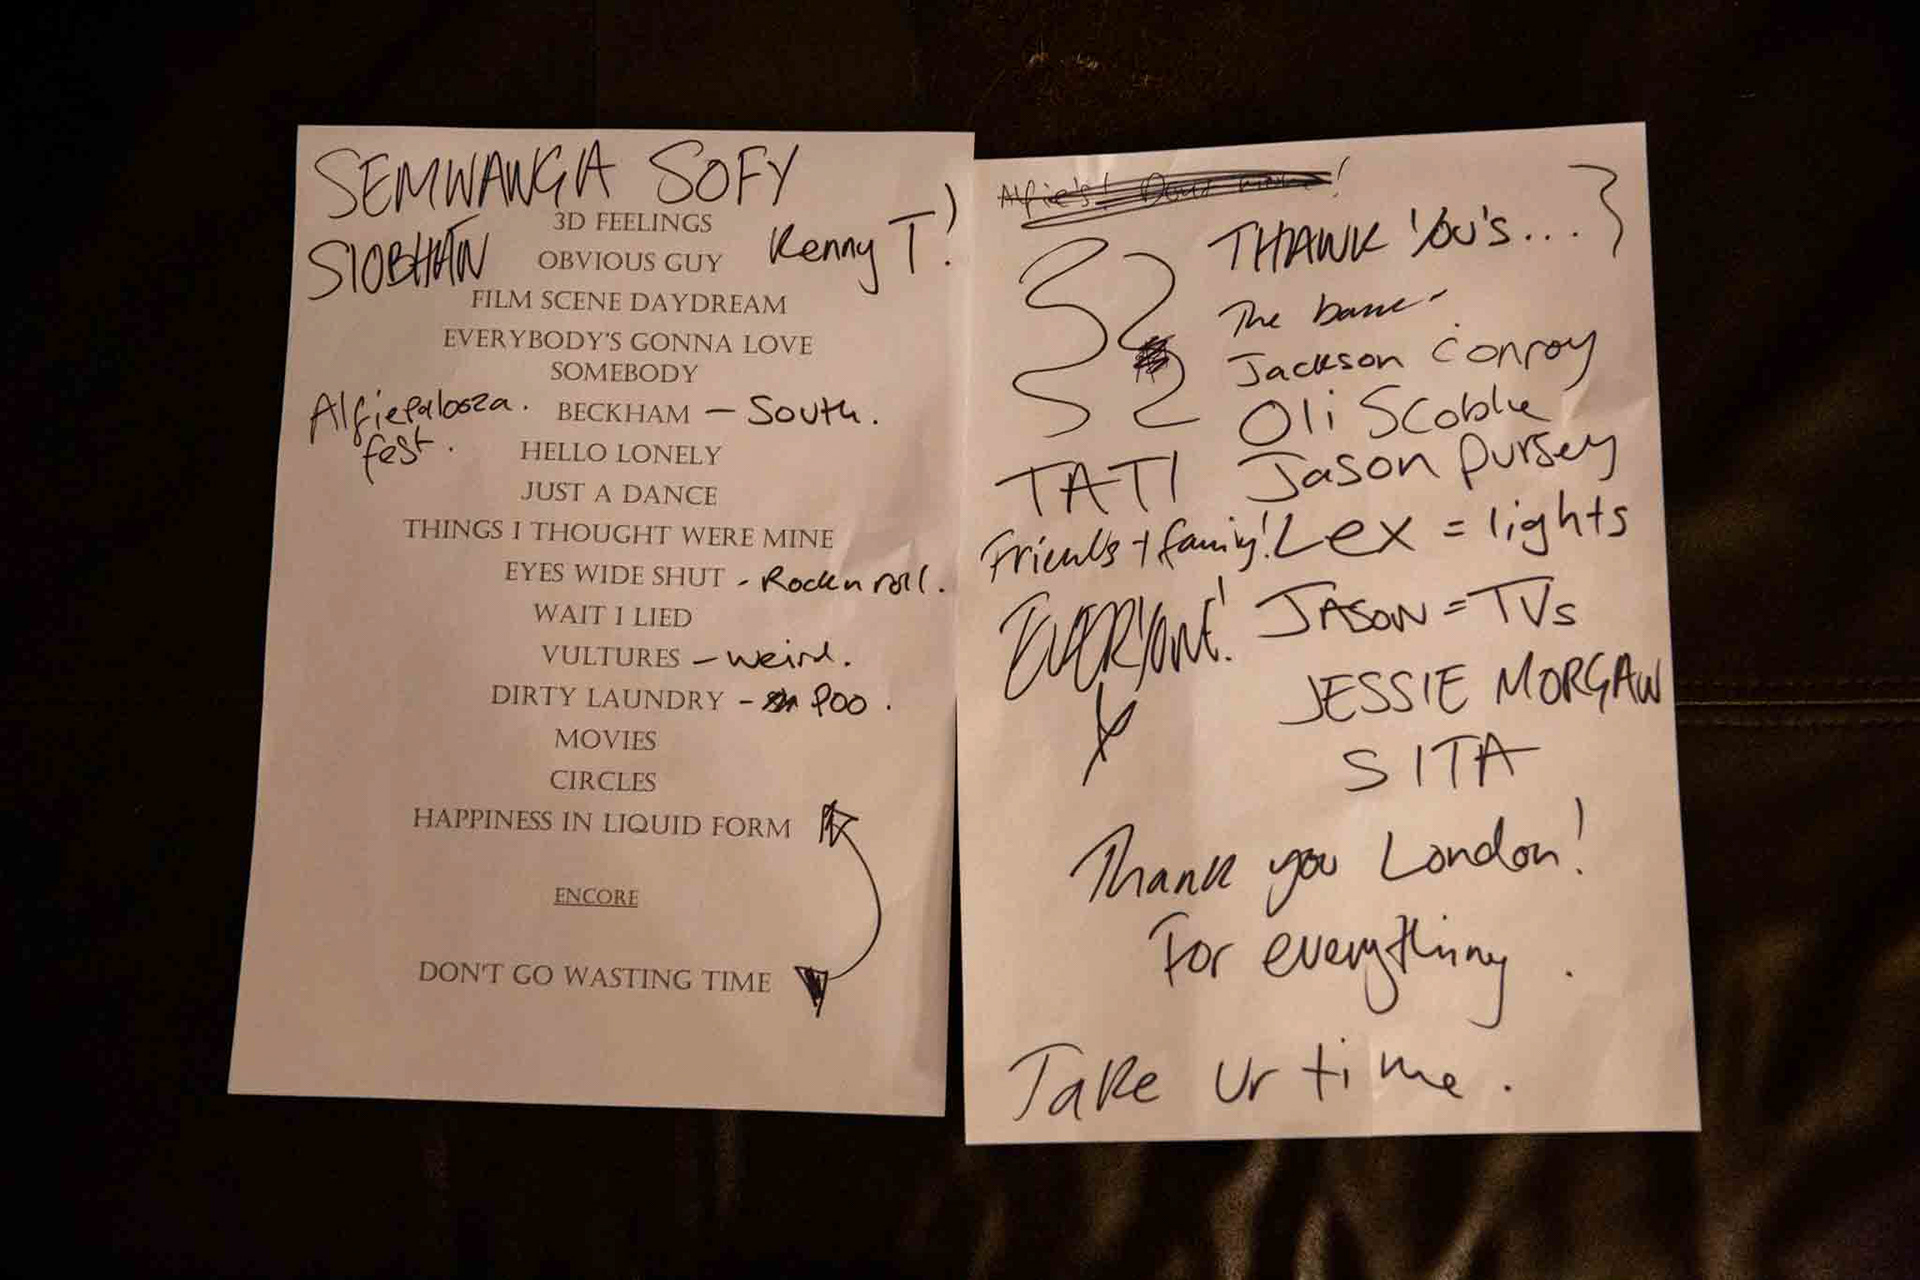 SEMWANGA SOFY
3D FEELINGS
SIOBHAN OBVIOUS GUY Kenny T!
FILM SCENE DAYDREAM
EVERYBODY'S GONNA LOVE
SOMEBODY
Alfiepalooza. BECKHAM - South.
fest.
HELLO LONELY
JUST A DANCE
THINGS I THOUGHT WERE MINE
EYES WIDE SHUT - Rock n roll.
WAIT I LIED
VULTURES - weird.
DIRTY LAUNDRY - Poo.
MOVIES
CIRCLES
HAPPINESS IN LIQUID FORM
ENCORE
DON'T GO WASTING TIME
Alfie's!
THANK YOU'S...
The
Jackson Conroy
Oli Scoble
TATI Jason Pursey
Friends + family! Lex = lights
EVERYONE! JASON = TVs
JESSIE MORGAN
SITA
Thank you London!
For everything.
Take ur time.